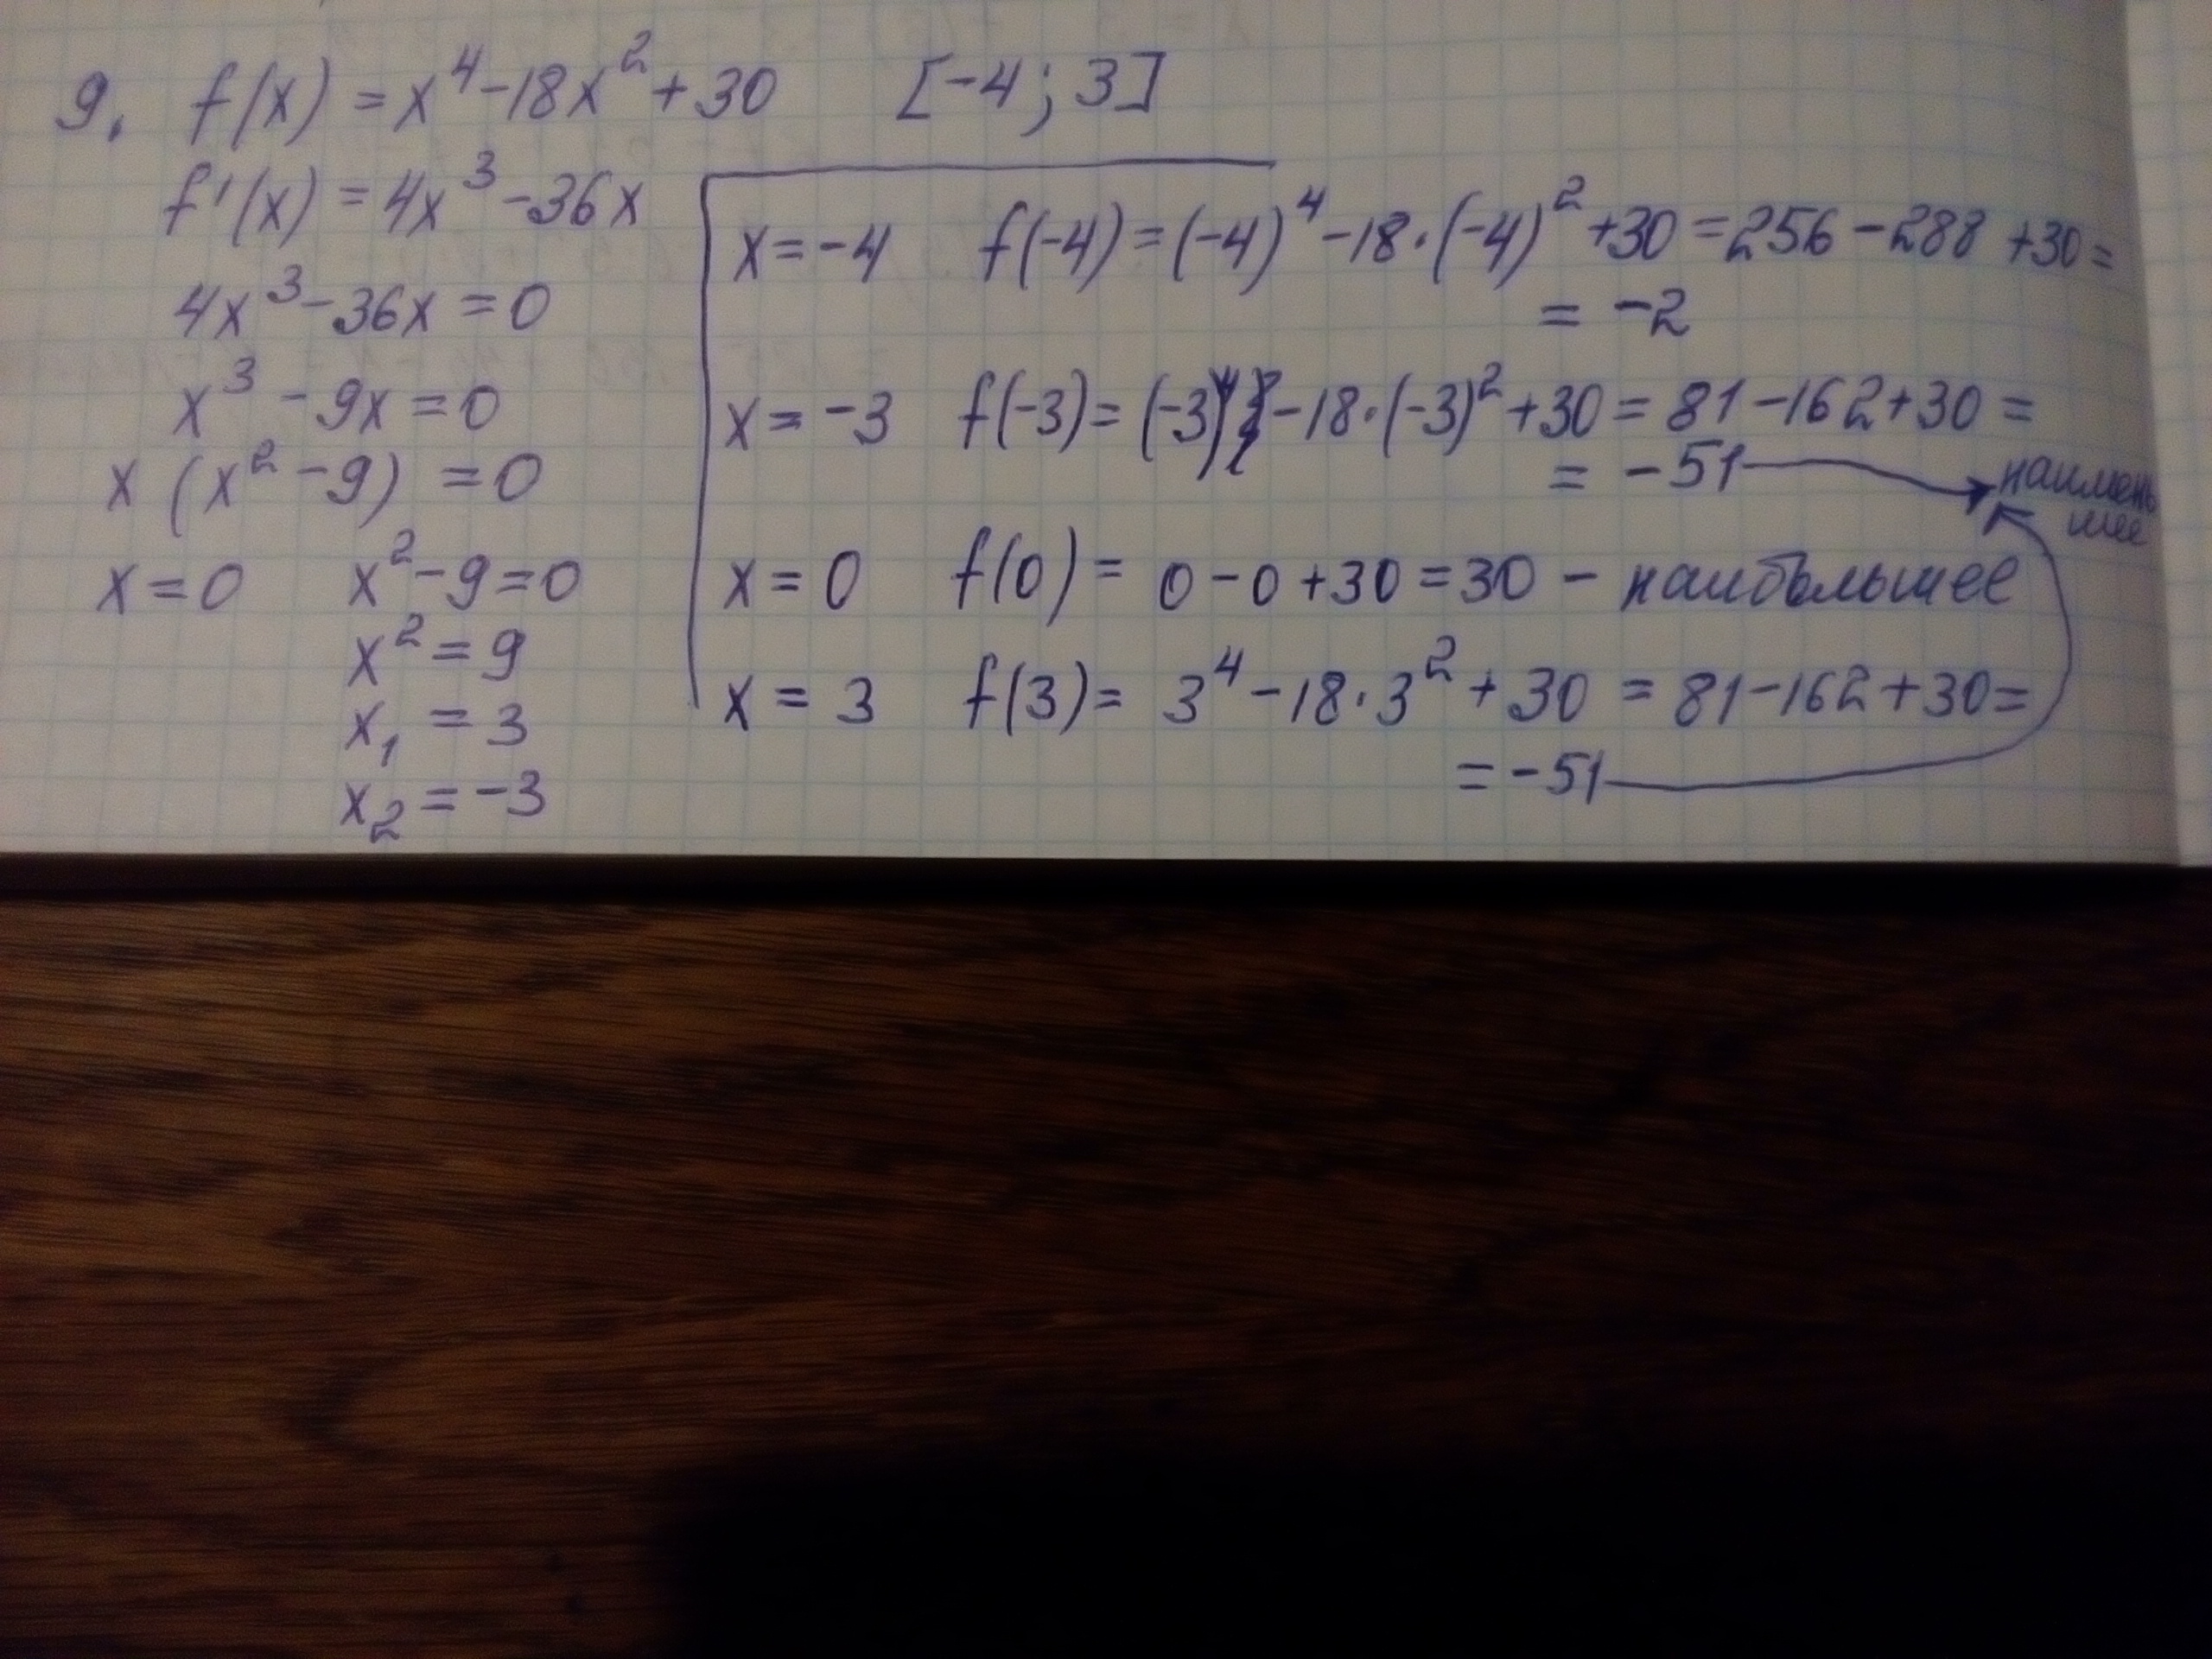 9. f(x) = x⁴ - 18x² + 30 [-4; 3]
f'(x) = 4x³ - 36x
4x³ - 36x = 0
x³ - 9x = 0
x (x² - 9) = 0
x = 0 x² - 9 = 0
x² = 9
x₁ = 3
x₂ = -3
x = -4 f(-4) = (-4)⁴ - 18·(-4)² + 30 = 256 - 288 + 30 =
= -2
x = -3 f(-3) = (-3)⁴ - 18·(-3)² + 30 = 81 - 162 + 30 =
= -51 наимень
шее
x = 0 f(0) = 0 - 0 + 30 = 30 - наибольшее
x = 3 f(3) = 3⁴ - 18·3² + 30 = 81 - 162 + 30 =
= -51